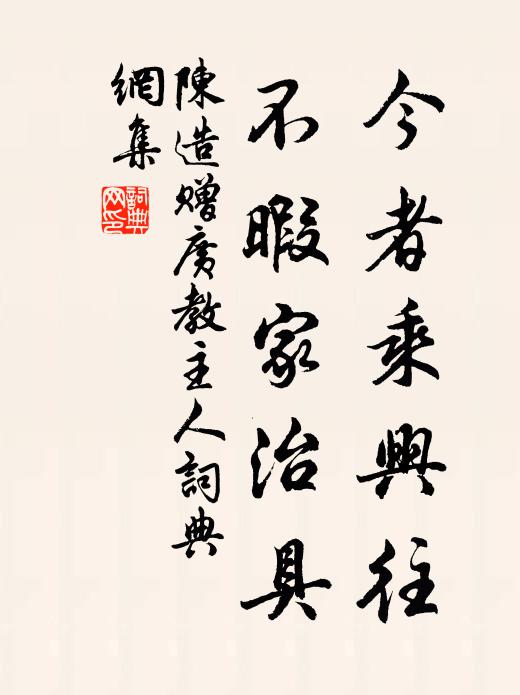 今者乘興往
不暇家治具
陳造贈廣教主人詞典
網集
詞典
网印